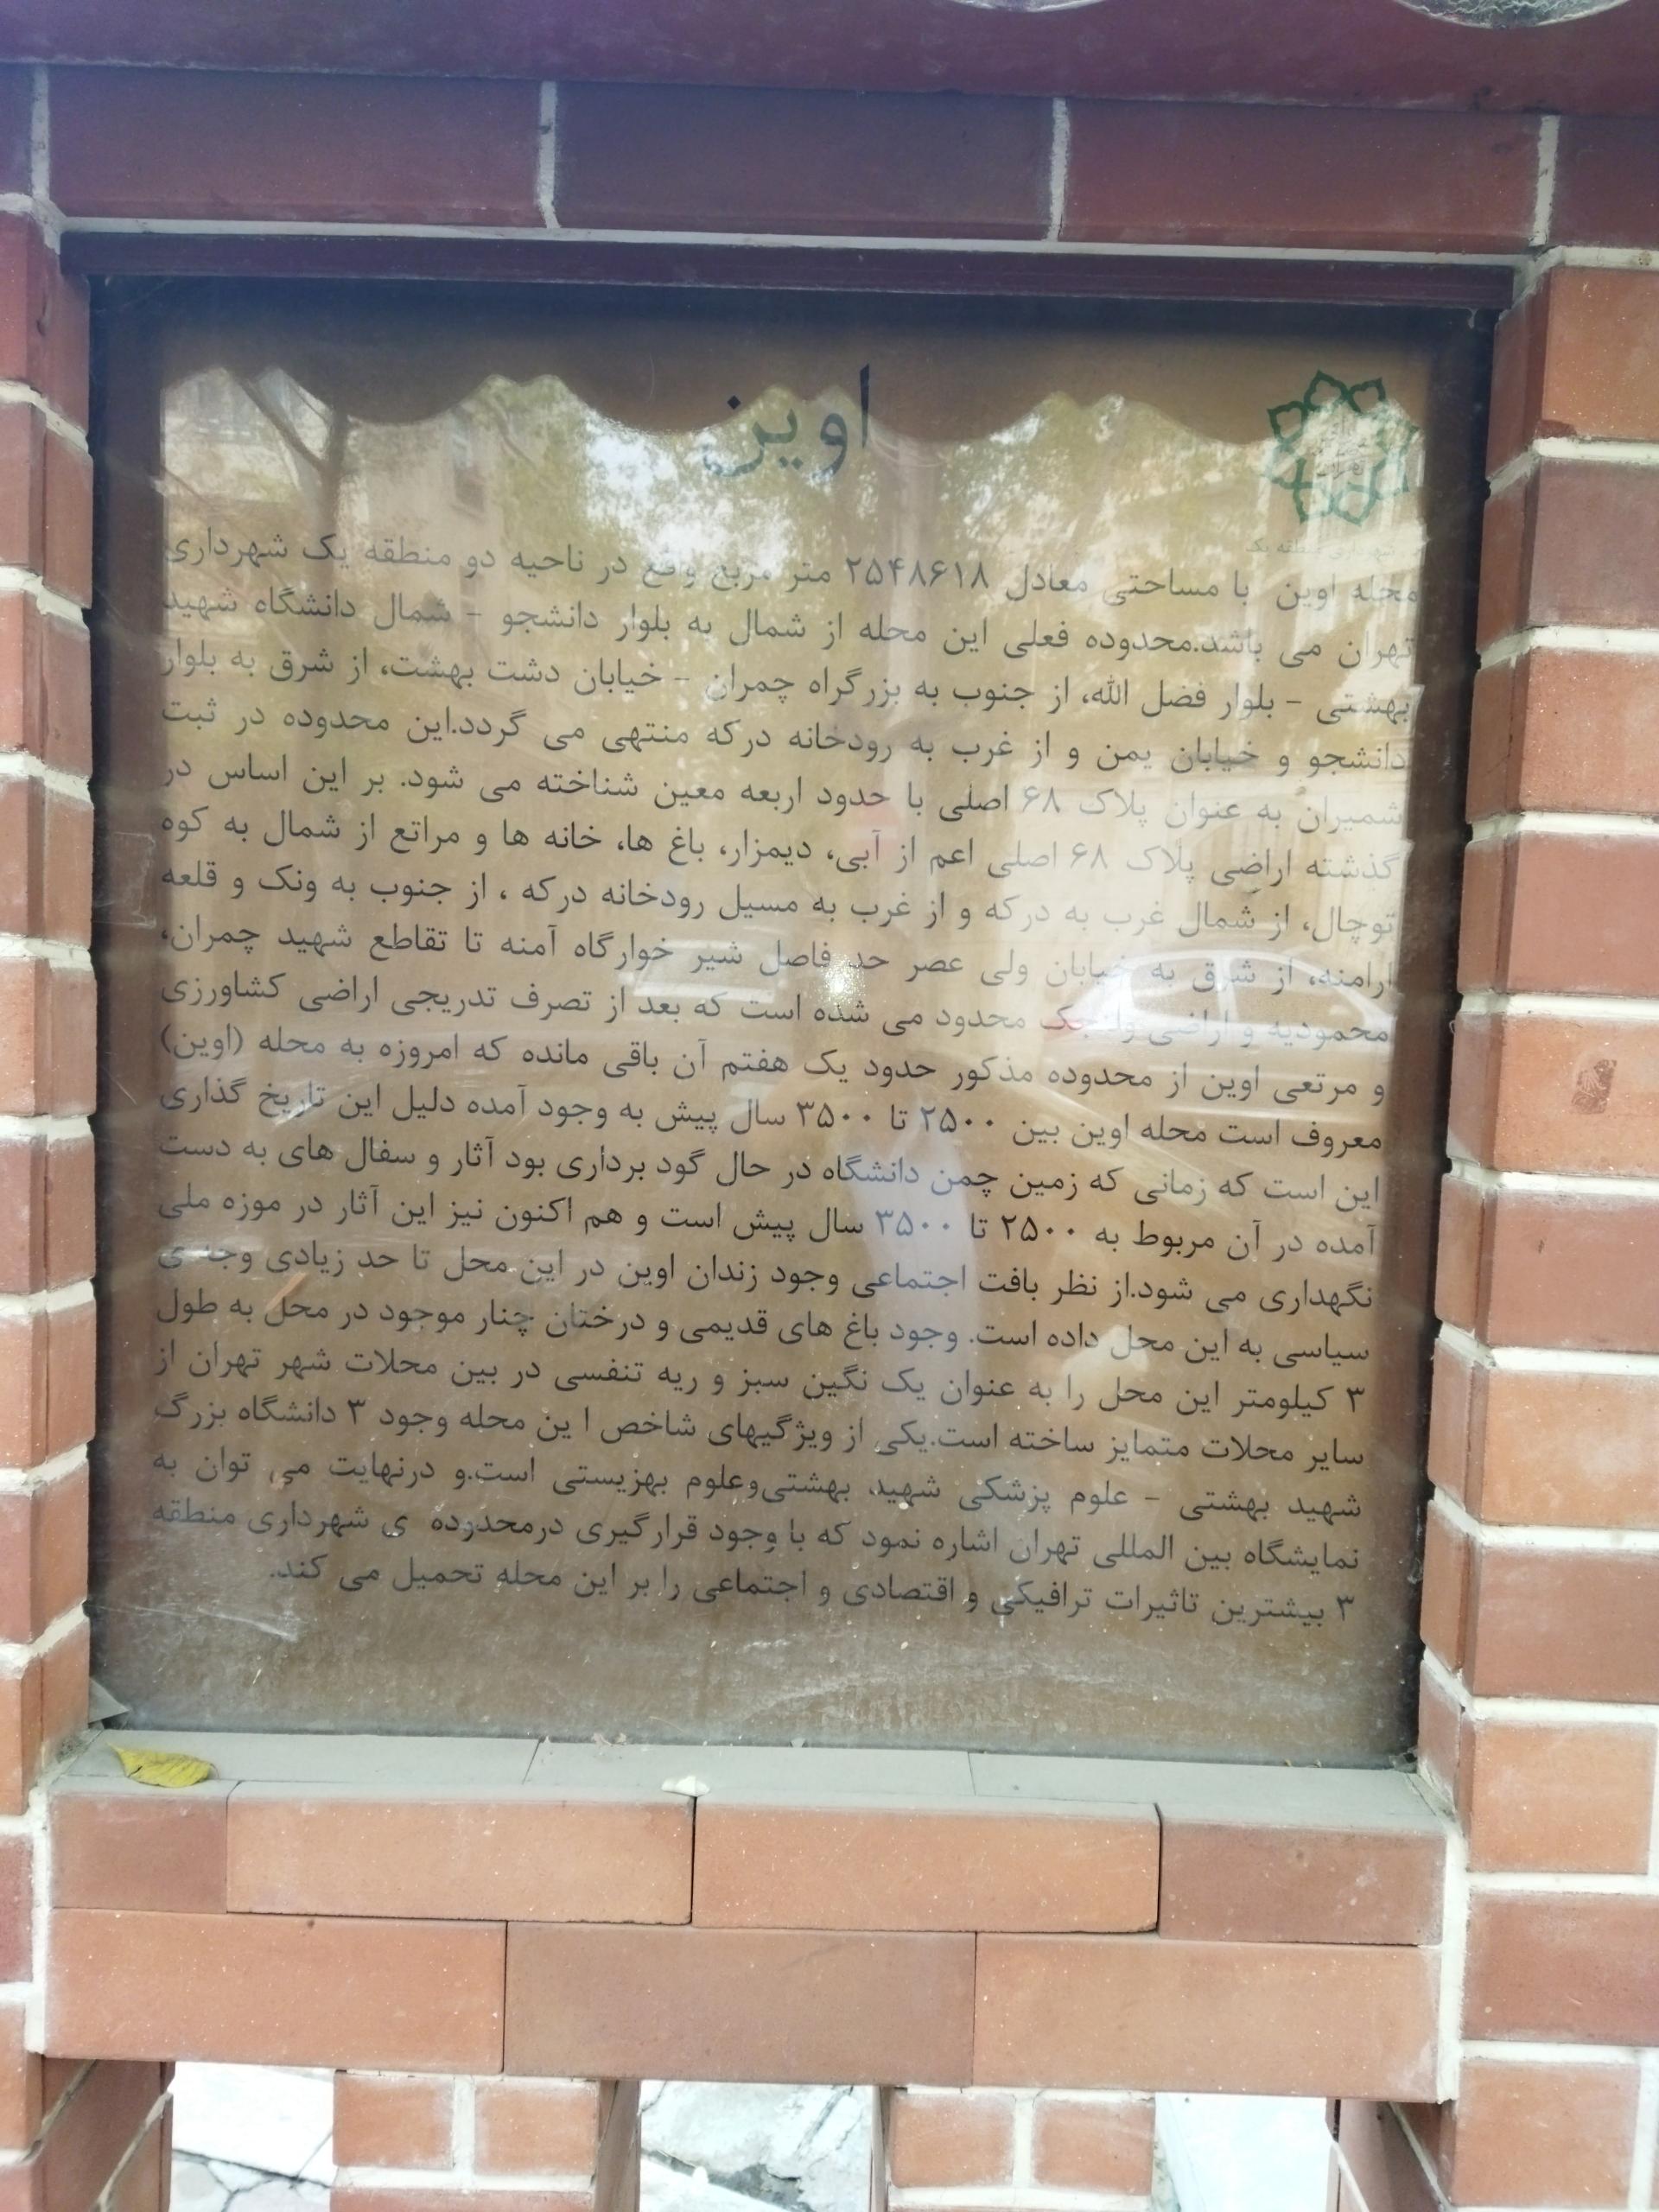 اوین
تهران
شهرداری منطقه یک
محله اوین با مساحتی معادل ۲۵۴۸۶۱۸ متر مربع واقع در ناحیه دو منطقه یک شهرداری
تهران می باشد.محدوده فعلی این محله از شمال به بلوار دانشجو - شمال دانشگاه شهید
بهشتی - بلوار فضل الله، از جنوب به بزرگراه چمران - خیابان دشت بهشت، از شرق به بلوار
دانشجو و خیابان یمن و از غرب به رودخانه درکه منتهی می گردد.این محدوده در ثبت
شمیران به عنوان پلاک ۶۸ اصلی با حدود اربعه معین شناخته می شود. بر این اساس در
گذشته اراضی پلاک ۶۸ اصلی اعم از آبی، دیمزار، باغ ها، خانه ها و مراتع از شمال به کوه
توچال، از شمال غرب به درکه و از غرب به مسیل رودخانه درکه ، از جنوب به ونک و قلعه
ارامنه، از شرق به خیابان ولی عصر حد فاصل شیر خوارگاه آمنه تا تقاطع شهید چمران،
محمودیه و اراضی ولنجک محدود می شده است که بعد از تصرف تدریجی اراضی کشاورزی
و مرتعی اوین از محدوده مذکور حدود یک هفتم آن باقی مانده که امروزه به محله (اوین)
معروف است محله اوین بین ۲۵۰۰ تا ۳۵۰۰ سال پیش به وجود آمده دلیل این تاریخ گذاری
این است که زمانی که زمین چمن دانشگاه در حال گود برداری بود آثار و سفال های به دست
آمده در آن مربوط به ۲۵۰۰ تا ۳۵۰۰ سال پیش است و هم اکنون نیز این آثار در موزه ملی
نگهداری می شود.از نظر بافت اجتماعی وجود زندان اوین در این محل تا حد زیادی وجه ی
سیاسی به این محل داده است. وجود باغ های قدیمی و درختان چنار موجود در محل به طول
۳ کیلومتر این محل را به عنوان یک نگین سبز و ریه تنفسی در بین محلات شهر تهران از
سایر محلات متمایز ساخته است.یکی از ویژگیهای شاخص ا ین محله وجود ۳ دانشگاه بزرگ
شهید بهشتی - علوم پزشکی شهید بهشتی‌وعلوم بهزیستی است.و درنهایت می توان به
نمایشگاه بین المللی تهران اشاره نمود که با وجود قرارگیری درمحدوده ی شهرداری منطقه
۳ بیشترین تاثیرات ترافیکی و اقتصادی و اجتماعی را بر این محله تحمیل می کند.